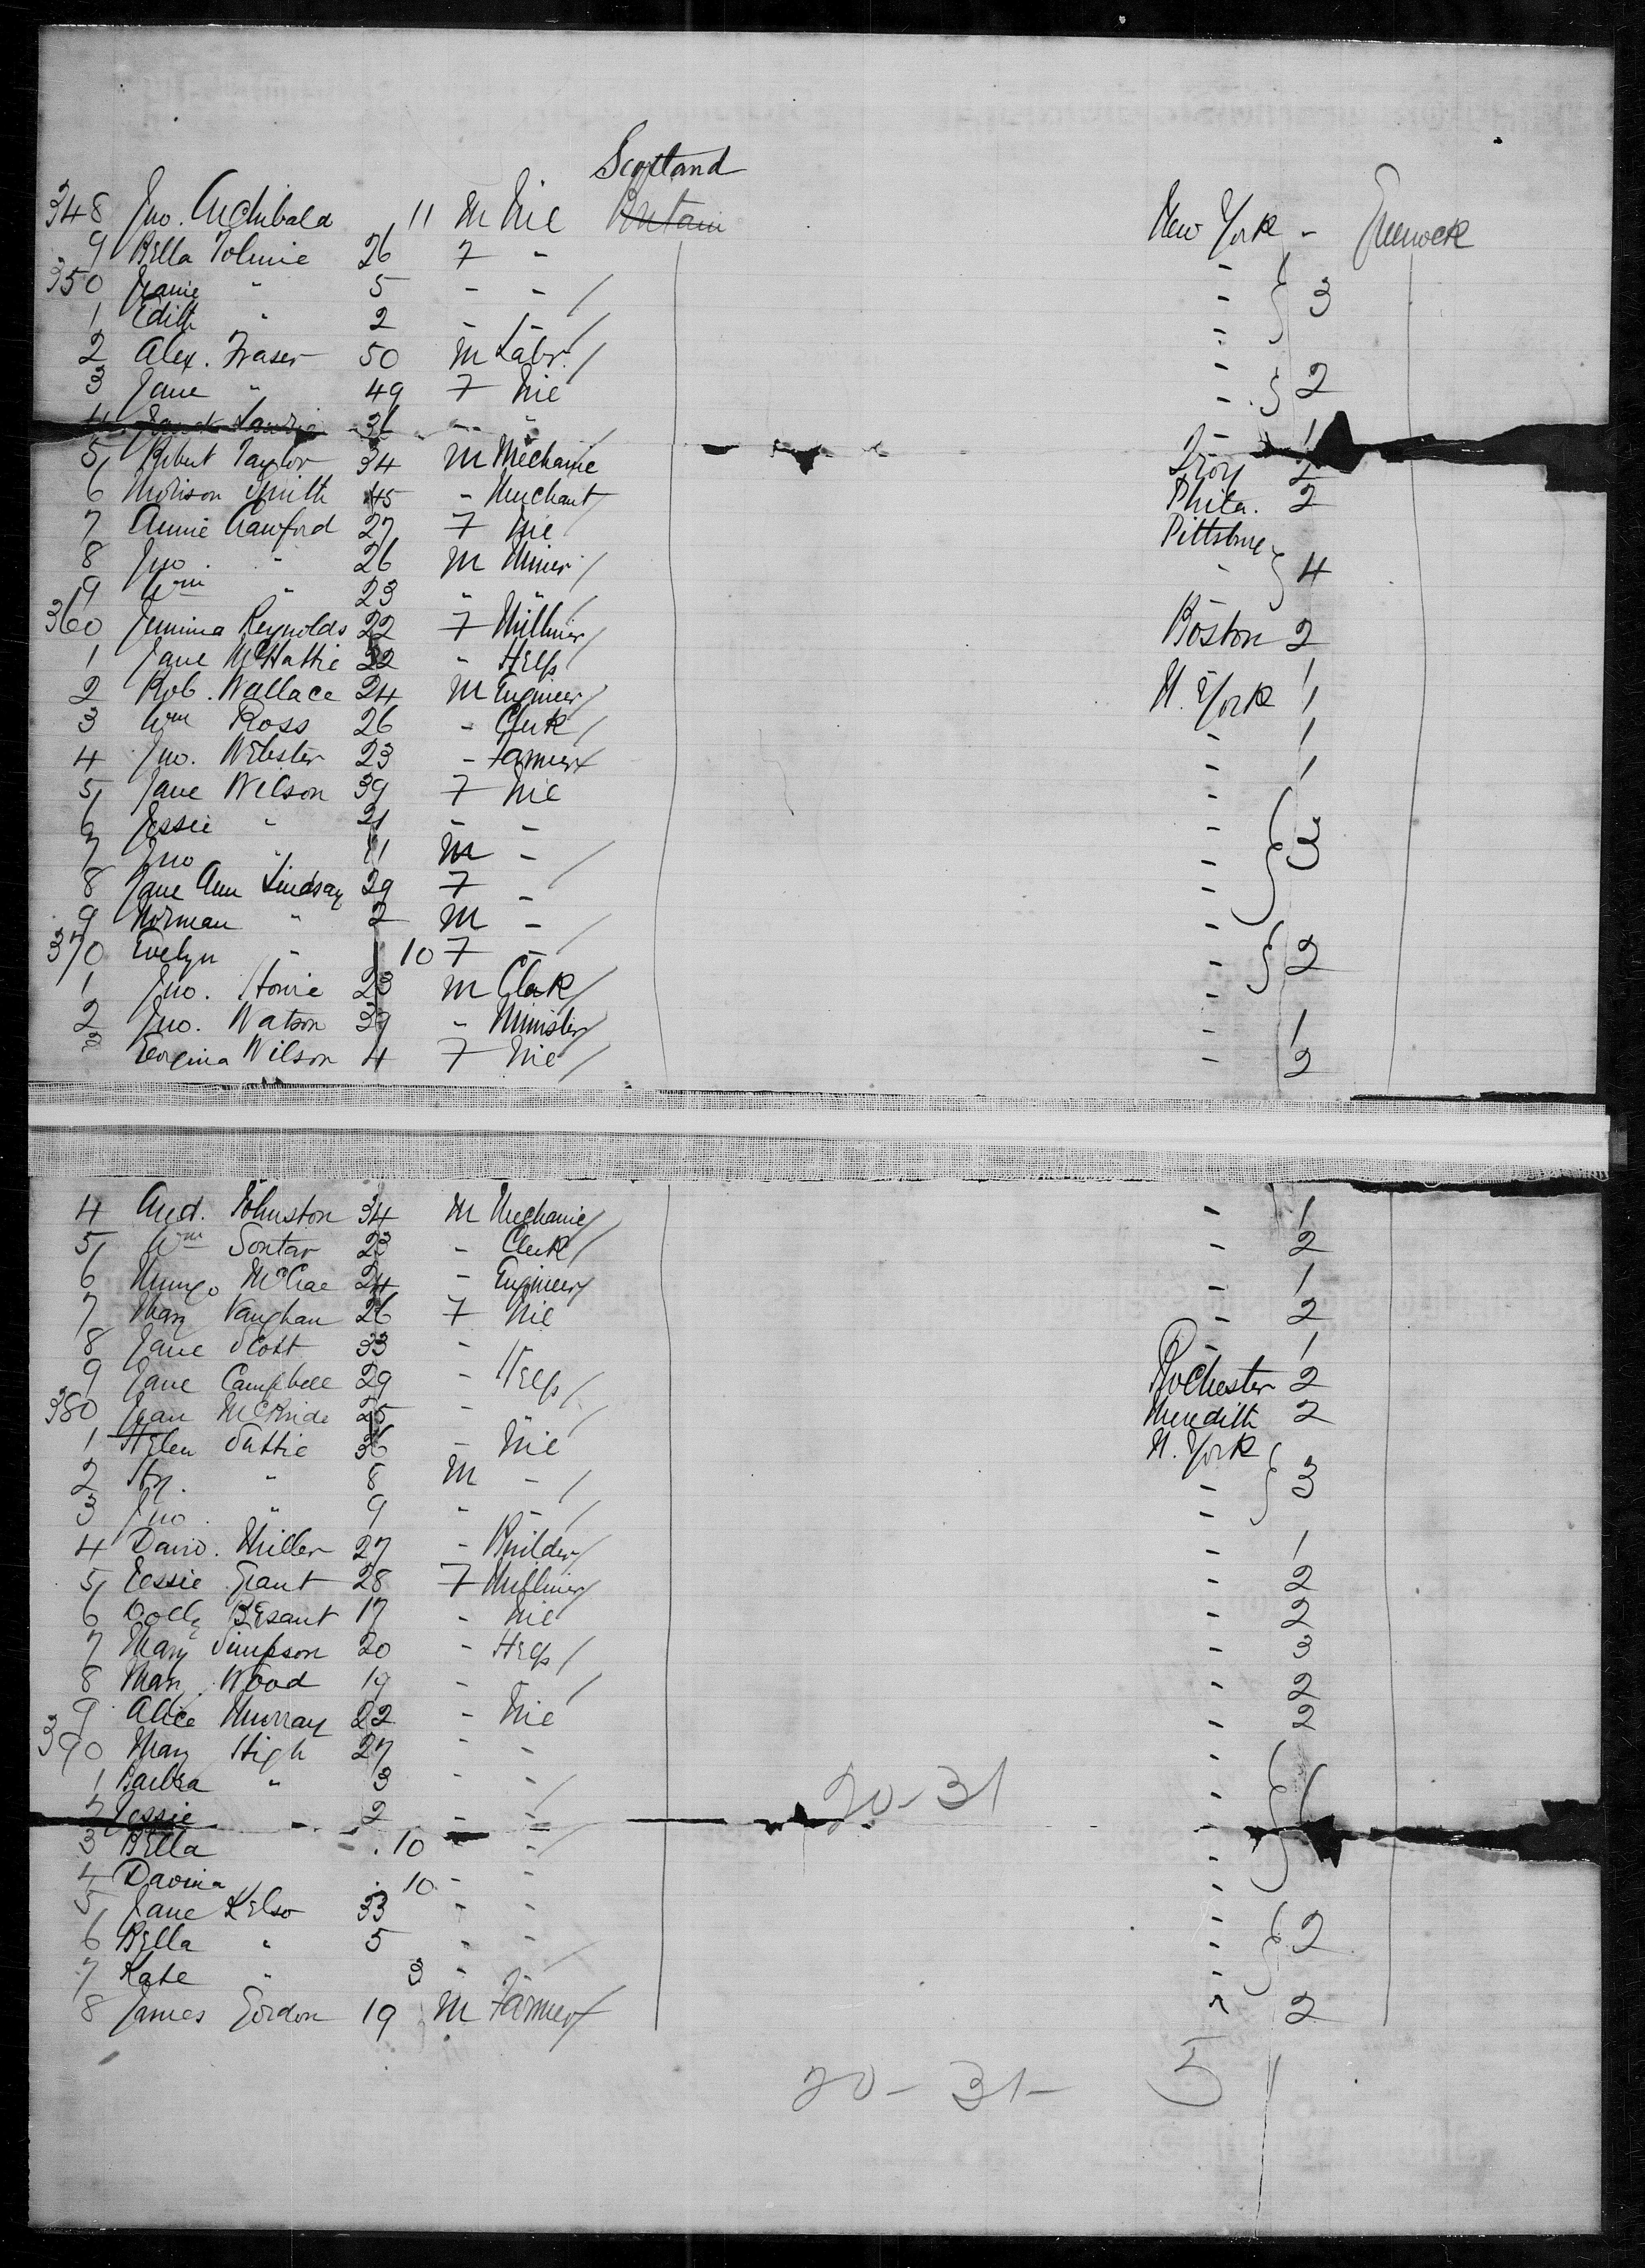 Scotland
348 Jno. Archibald 11 M Nil Britain New York - Greenock
9 Bella Tolmie 26 F " -
350 Jeanie " 5 - - / - } 3
1 Edith " 2 - - / -
2 Alex. Fraser 50 M Labr. / -
3 Jane " 49 F Nil - } 2
4 Lawrie 36 - " - 1
5 Robert Taylor 34 M Mechanic Troy 2
6 Morison Smith 45 - Merchant Phila. 2
7 Annie Crawford 27 F Nil Pittsburg
8 Jno. " 26 M Miner / " } 4
9 Wm " 23 " " /
360 Jemima Reynolds 22 F Milliner / Boston 2
1 Jane McHattie 22 " Help / 1
2 Rob. Wallace 24 M Engineer / N. York 1
3 Wm Ross 26 - Clerk / - 1
4 Jno. Webster 23 - Farmer / - 1
5 Jane Wilson 39 F Nil -
6 Jessie " 21 - - -
7 Jno " 11 M - / - } 3
8 Jane Ann Lindsay 29 F - -
9 Norman " 2 M - / -
370 Evelyn " 10 F - / - } 2
1 Jno. Howie 23 M Clerk / -
2 Jno. Watson 39 " Minister / - 1
3 Georgina Wilson 4 F Nil / - 2
4 And. Johnston 34 M Mechanic / - 1
5 Wm Soutar 23 - Clerk / - 2
6 Mungo McCrae 24 - Engineer / - 1
7 Mary Vaughan 26 F Nil - 2
8 Jane Scott 33 - - 1
9 Jane Campbell 29 - Help / Rochester 2
380 Jean McBride 25 - - / Meredith 2
1 Helen Suttie 36 - Nil N. York
2 Hy. " 8 M - / - } 3
3 Jno. " 9 - - / -
4 David. Miller 27 - Builder / - 1
5 Jessie Grant 28 F Milliner / - 2
6 Dolly Besant 17 - Nil - 2
7 Mary Simpson 20 - Help / - 3
8 Mary Wood 19 - - / - 2
9 Alice Murray 22 - Nil - 2
390 Mary High 27 - - -
1 Barbra " 3 - - / - } 1
20-31
2 Jessie " 2 - - -
3 Bella - . 10 - - / -
4 Davina . 10 - - -
5 Jane Kelso 33 - - -
6 Bella " 5 - - - } 2
7 Kate " 3 - -
8 James Gordon 19 M Farmer / " 2
20-31- 5